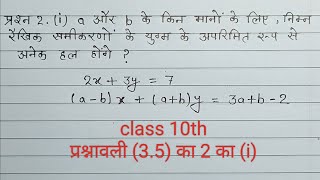 प्रश्न 2. (i) a और b के किन मानों के लिए, निम्न
रैखिक समीकरणों के युग्म के अपरिमित रूप से
अनेक हल होंगे ?
2x + 3y = 7
(a-b)x + (a+b)y = 3a+b-2
class 10th
प्रश्नावली (3.5) का 2 का (i)